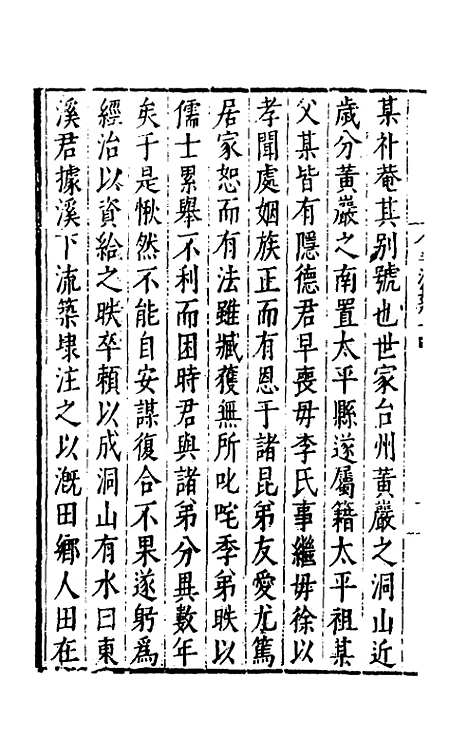 某补菴其别號也世家台州黃巖之洞山近
歲分黃巖之南置太平縣遂屬籍太平祖某
父某皆有隱德君早喪母李氏事繼母徐以
孝聞處姻族正而有恩于諸昆弟友愛尤篤
居家恕而有法雖臧獲無所叱咤季弟昳以
儒士累舉不利而困時君與諸弟分異數年
矣于是愀然不能自安謀復合不果遂躬為
經治以資給之昳卒賴以成洞山有水曰東
溪君據溪下流築埭注之以溉田鄉人田在